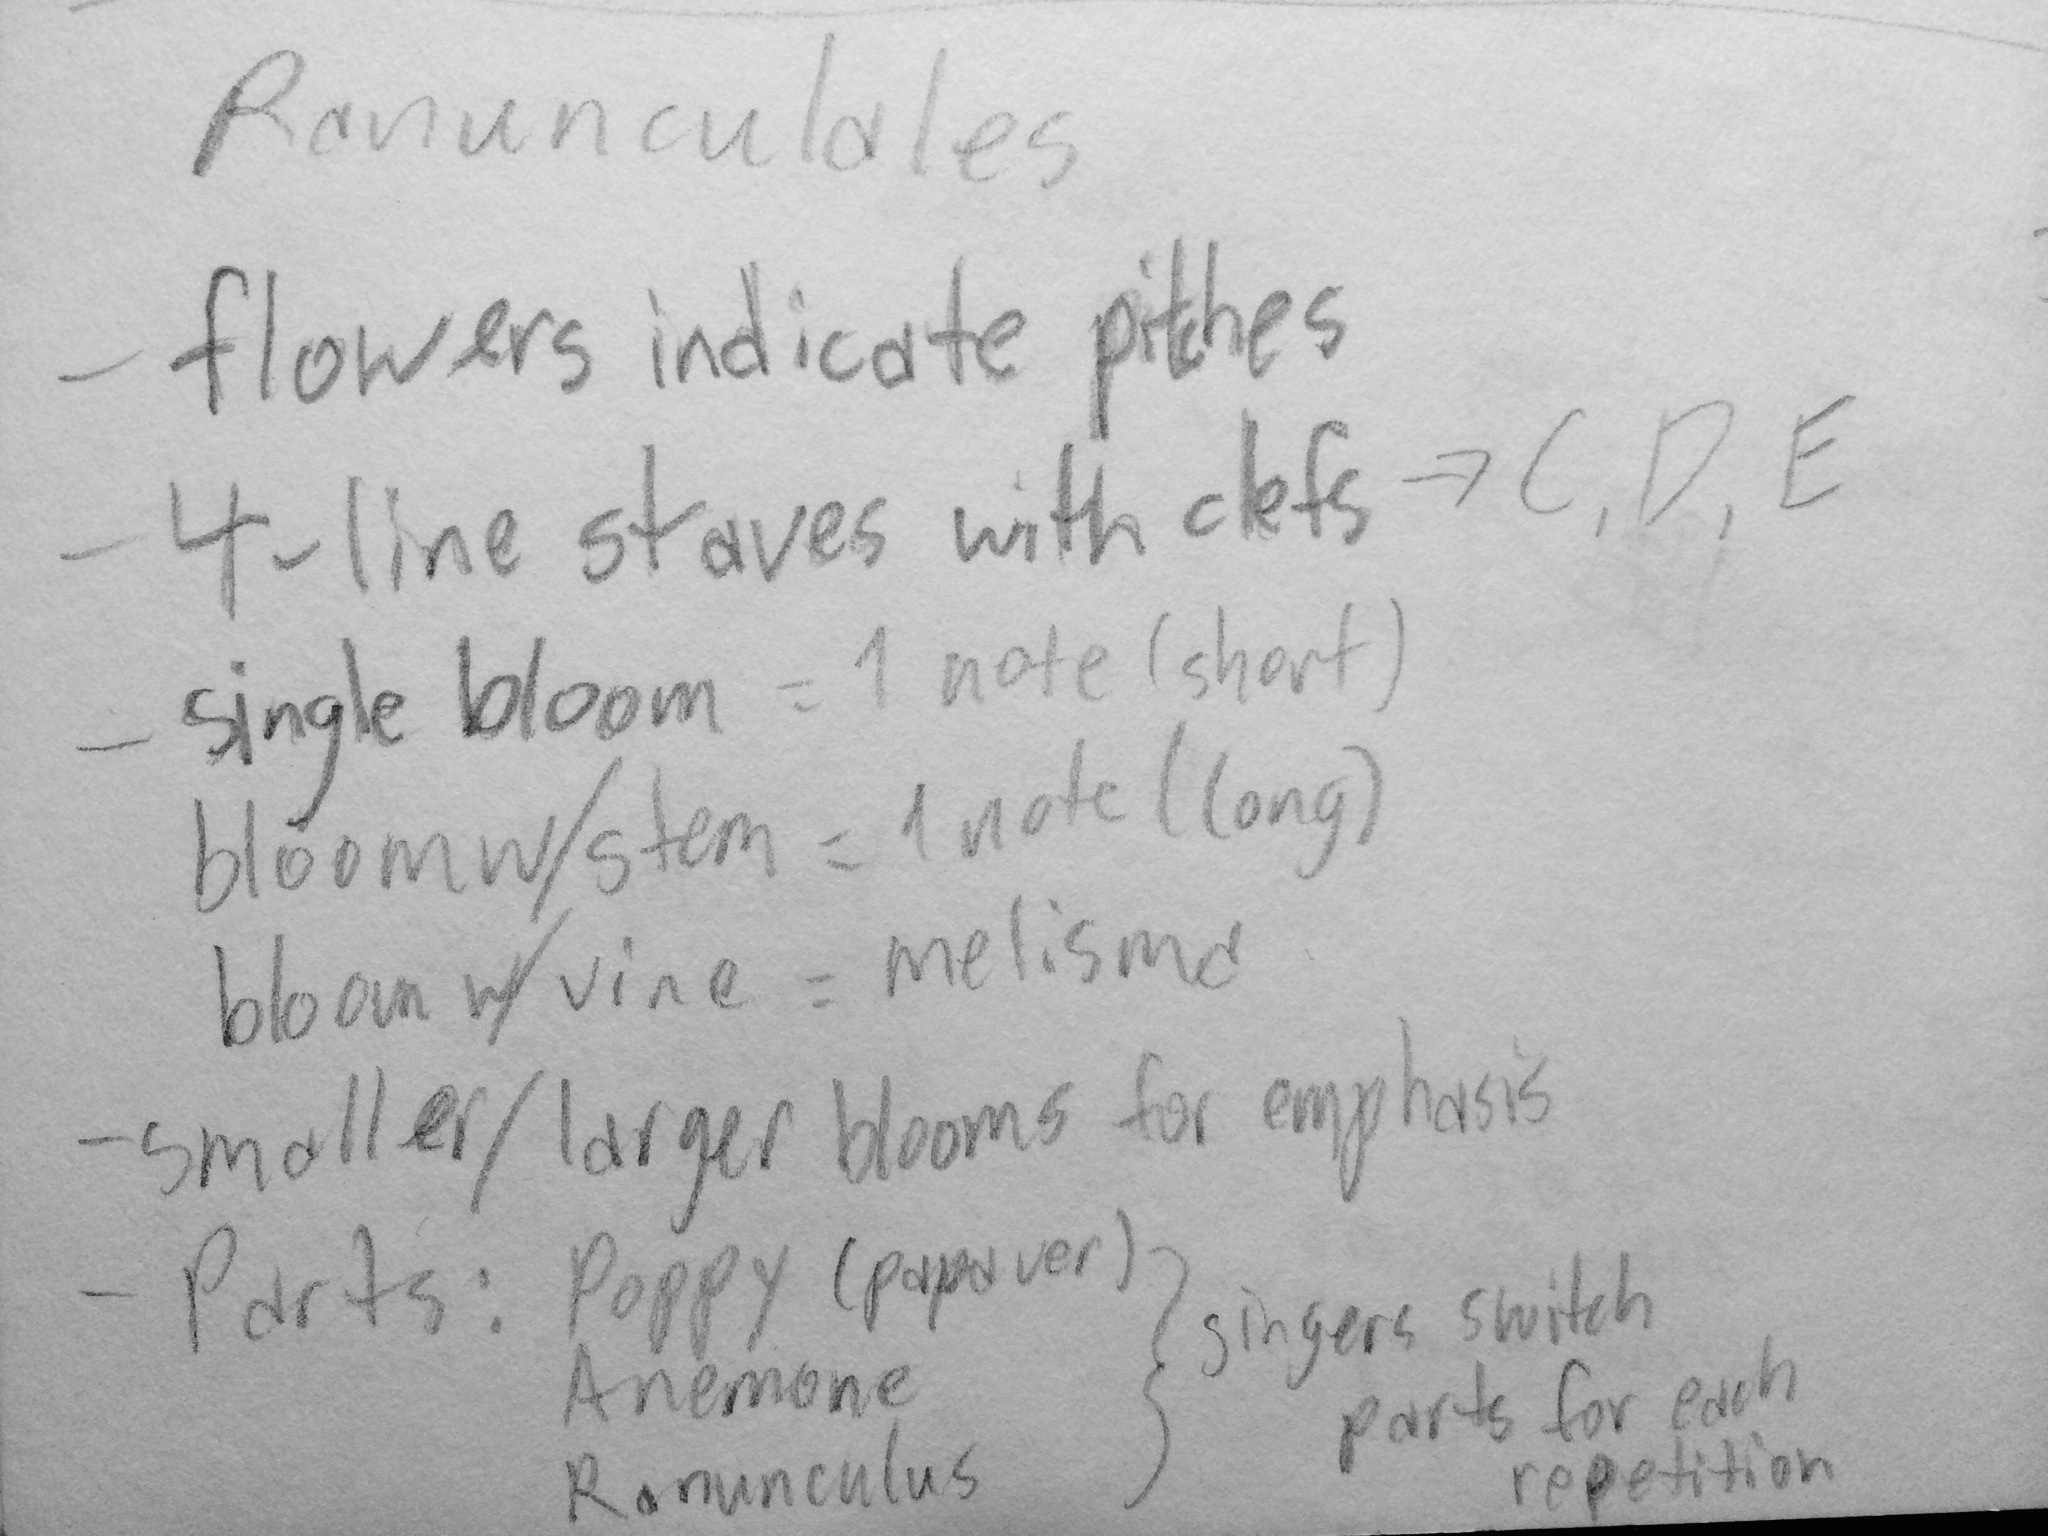 Ranunculales
- flowers indicate pitches
- 4-line staves with clefs → C, D, E
- single bloom = 1 note (short)
bloom w/ stem = 1 note (long)
bloom w/ vine = melisma
- smaller/larger blooms for emphasis
- Parts: Poppy (papaver)
Anemone
Ranunculus
singers switch
parts for each
repetition